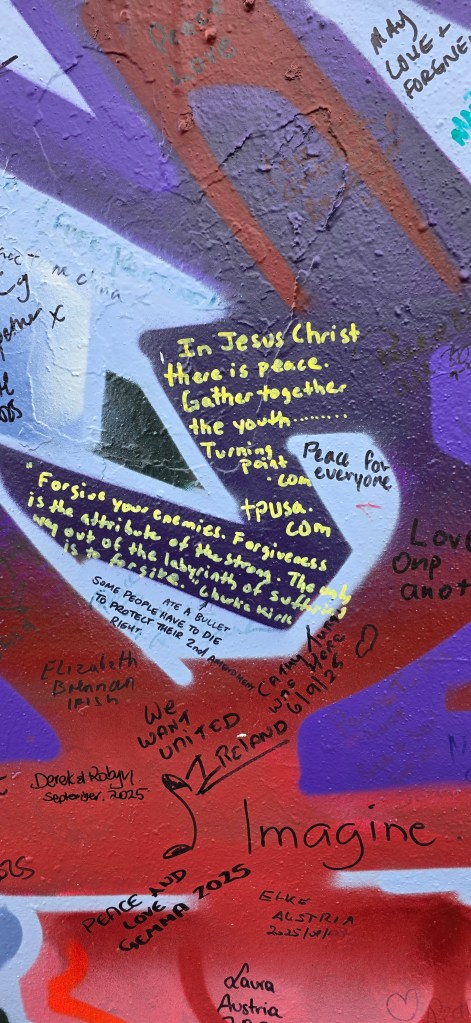 Peace
Love
MAY
LOVE +
FORGIVEN
In Jesus Christ
there is peace.
Gather together
the youth........
Turning
Point
.com
tpusa.
com
Peace for
everyone
"Forgive your enemies. Forgiveness
is the attribute of the strong. The only
way out of the labyrinth of suffering
is to forgive." Charlie Kirk
ATE A BULLET
SOME PEOPLE HAVE TO DIE
TO PROTECT THEIR 2nd AMENDMENT
RIGHT.
Love
One
anot
Elizabeth
Brennan
IRISH
CATHY
WAS HERE
6/9/25
We
WANT
UNITED
IRELAND
Derek & Robyn.
September, 2025
Imagine.
PEACE AND
LOVE
GEMMA 2025
ELKE
AUSTRIA
Laura
Austria